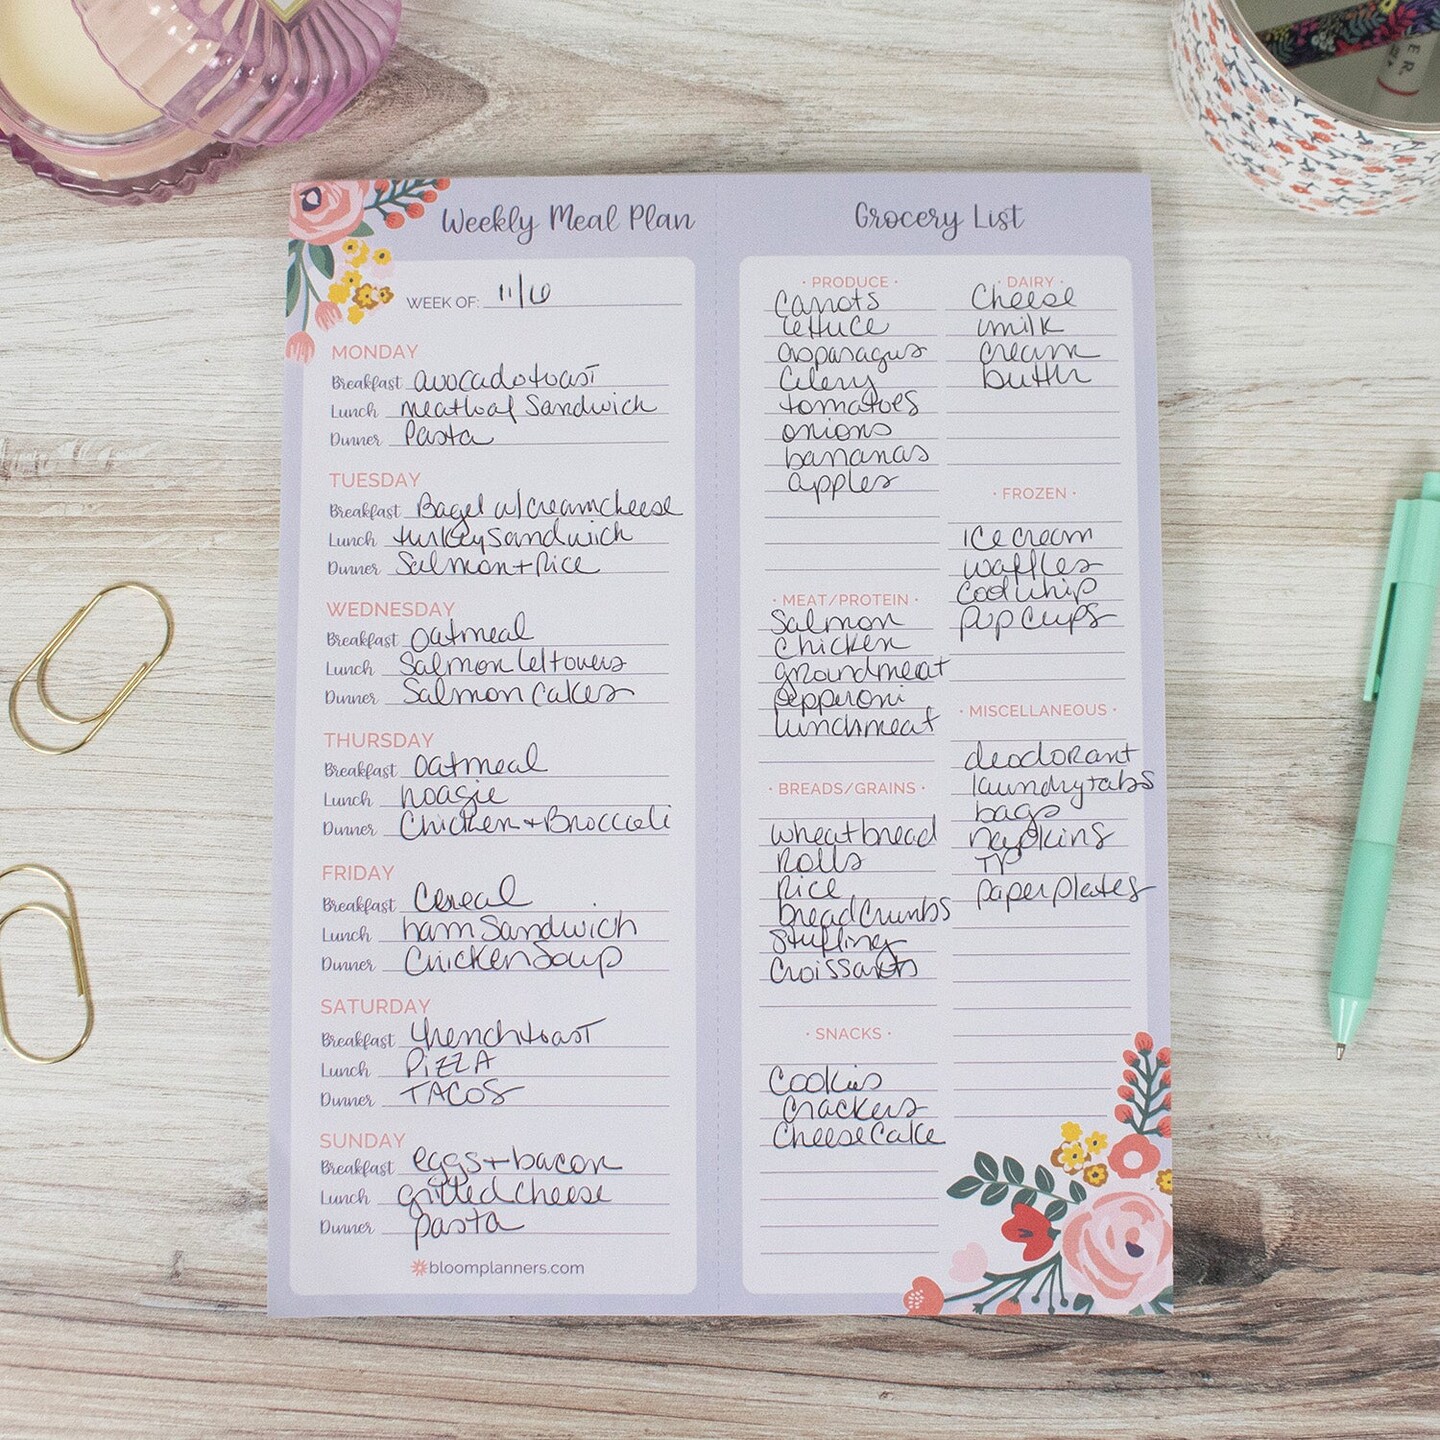 Weekly Meal Plan
WEEK OF: 11/6
MONDAY
Breakfast avocado toast
Lunch meatloaf Sandwich
Dinner Pasta
TUESDAY
Breakfast Bagel w/creamcheese
Lunch turkey Sandwich
Dinner Salmon + Rice
WEDNESDAY
Breakfast oatmeal
Lunch Salmon leftovers
Dinner Salmon Cakes
THURSDAY
Breakfast oatmeal
Lunch hoagie
Dinner Chicken + Broccoli
FRIDAY
Breakfast Cereal
Lunch ham Sandwich
Dinner Chicken Soup
SATURDAY
Breakfast french toast
Lunch PIZZA
Dinner TACOS
SUNDAY
Breakfast eggs + bacon
Lunch grilled cheese
Dinner pasta
bloomplanners.com
Grocery List
· PRODUCE ·
Carrots
lettuce
asparagus
Celery
tomatoes
onions
bananas
apples
· MEAT/PROTEIN ·
Salmon
Chicken
groundmeat
pepperoni
lunchmeat
· BREADS/GRAINS ·
wheat bread
Rolls
Rice
bread Crumbs
Stuffing
Croissants
· SNACKS ·
Cookies
Crackers
Cheese Cake
· DAIRY ·
Cheese
milk
cream
butter
· FROZEN ·
ice cream
waffles
cool whip
pup cups
· MISCELLANEOUS ·
deodorant
laundry tabs
bags
napkins
TP
paper plates